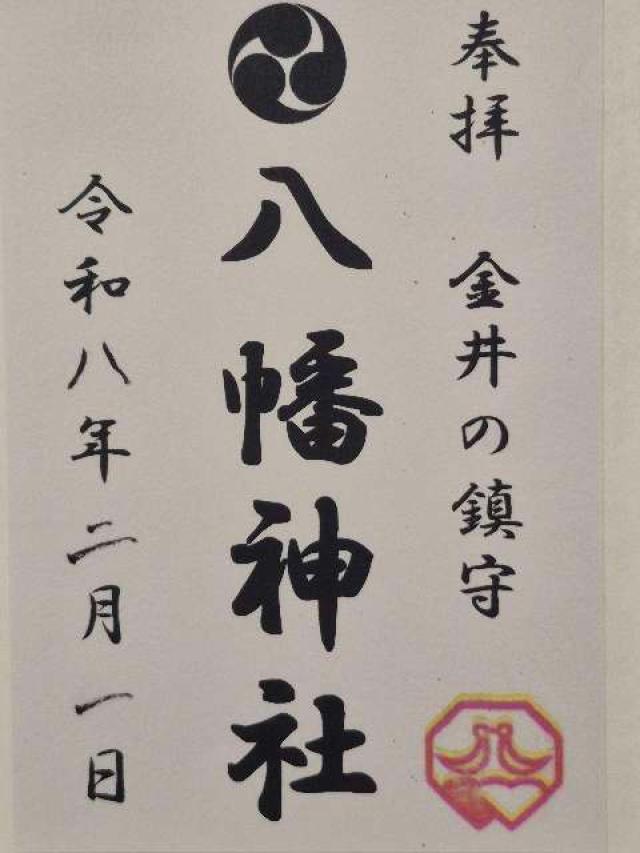 奉拝 金井の鎮守
八幡神社
令和八年二月一日